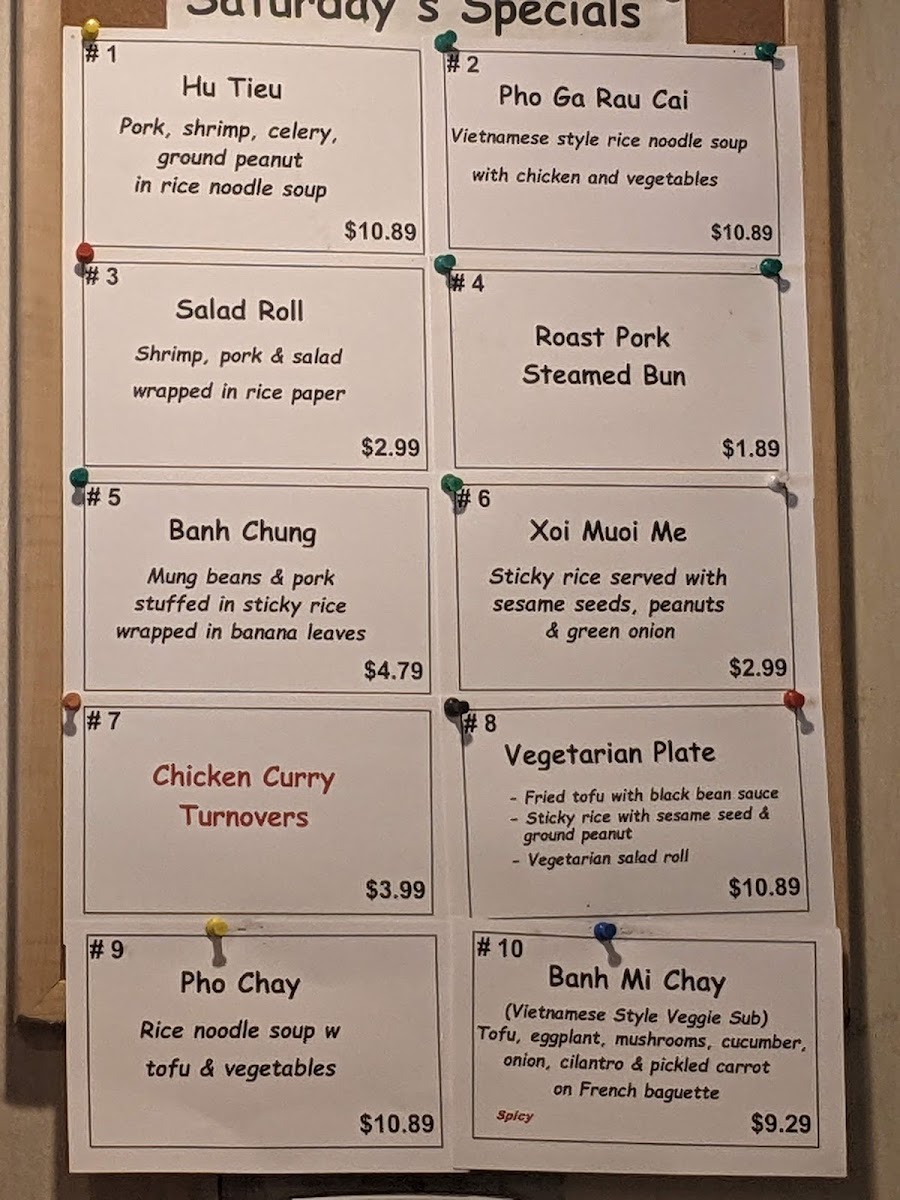 Saturday's Specials
# 1
Hu Tieu
Pork, shrimp, celery,
ground peanut
in rice noodle soup
$10.89
# 2
Pho Ga Rau Cai
Vietnamese style rice noodle soup
with chicken and vegetables
$10.89
# 3
Salad Roll
Shrimp, pork & salad
wrapped in rice paper
$2.99
# 4
Roast Pork
Steamed Bun
$1.89
# 5
Banh Chung
Mung beans & pork
stuffed in sticky rice
wrapped in banana leaves
$4.79
# 6
Xoi Muoi Me
Sticky rice served with
sesame seeds, peanuts
& green onion
$2.99
# 7
Chicken Curry
Turnovers
$3.99
# 8
Vegetarian Plate
- Fried tofu with black bean sauce
- Sticky rice with sesame seed &
ground peanut
- Vegetarian salad roll
$10.89
# 9
Pho Chay
Rice noodle soup w
tofu & vegetables
$10.89
# 10
Banh Mi Chay
(Vietnamese Style Veggie Sub)
Tofu, eggplant, mushrooms, cucumber,
onion, cilantro & pickled carrot
on French baguette
Spicy
$9.29